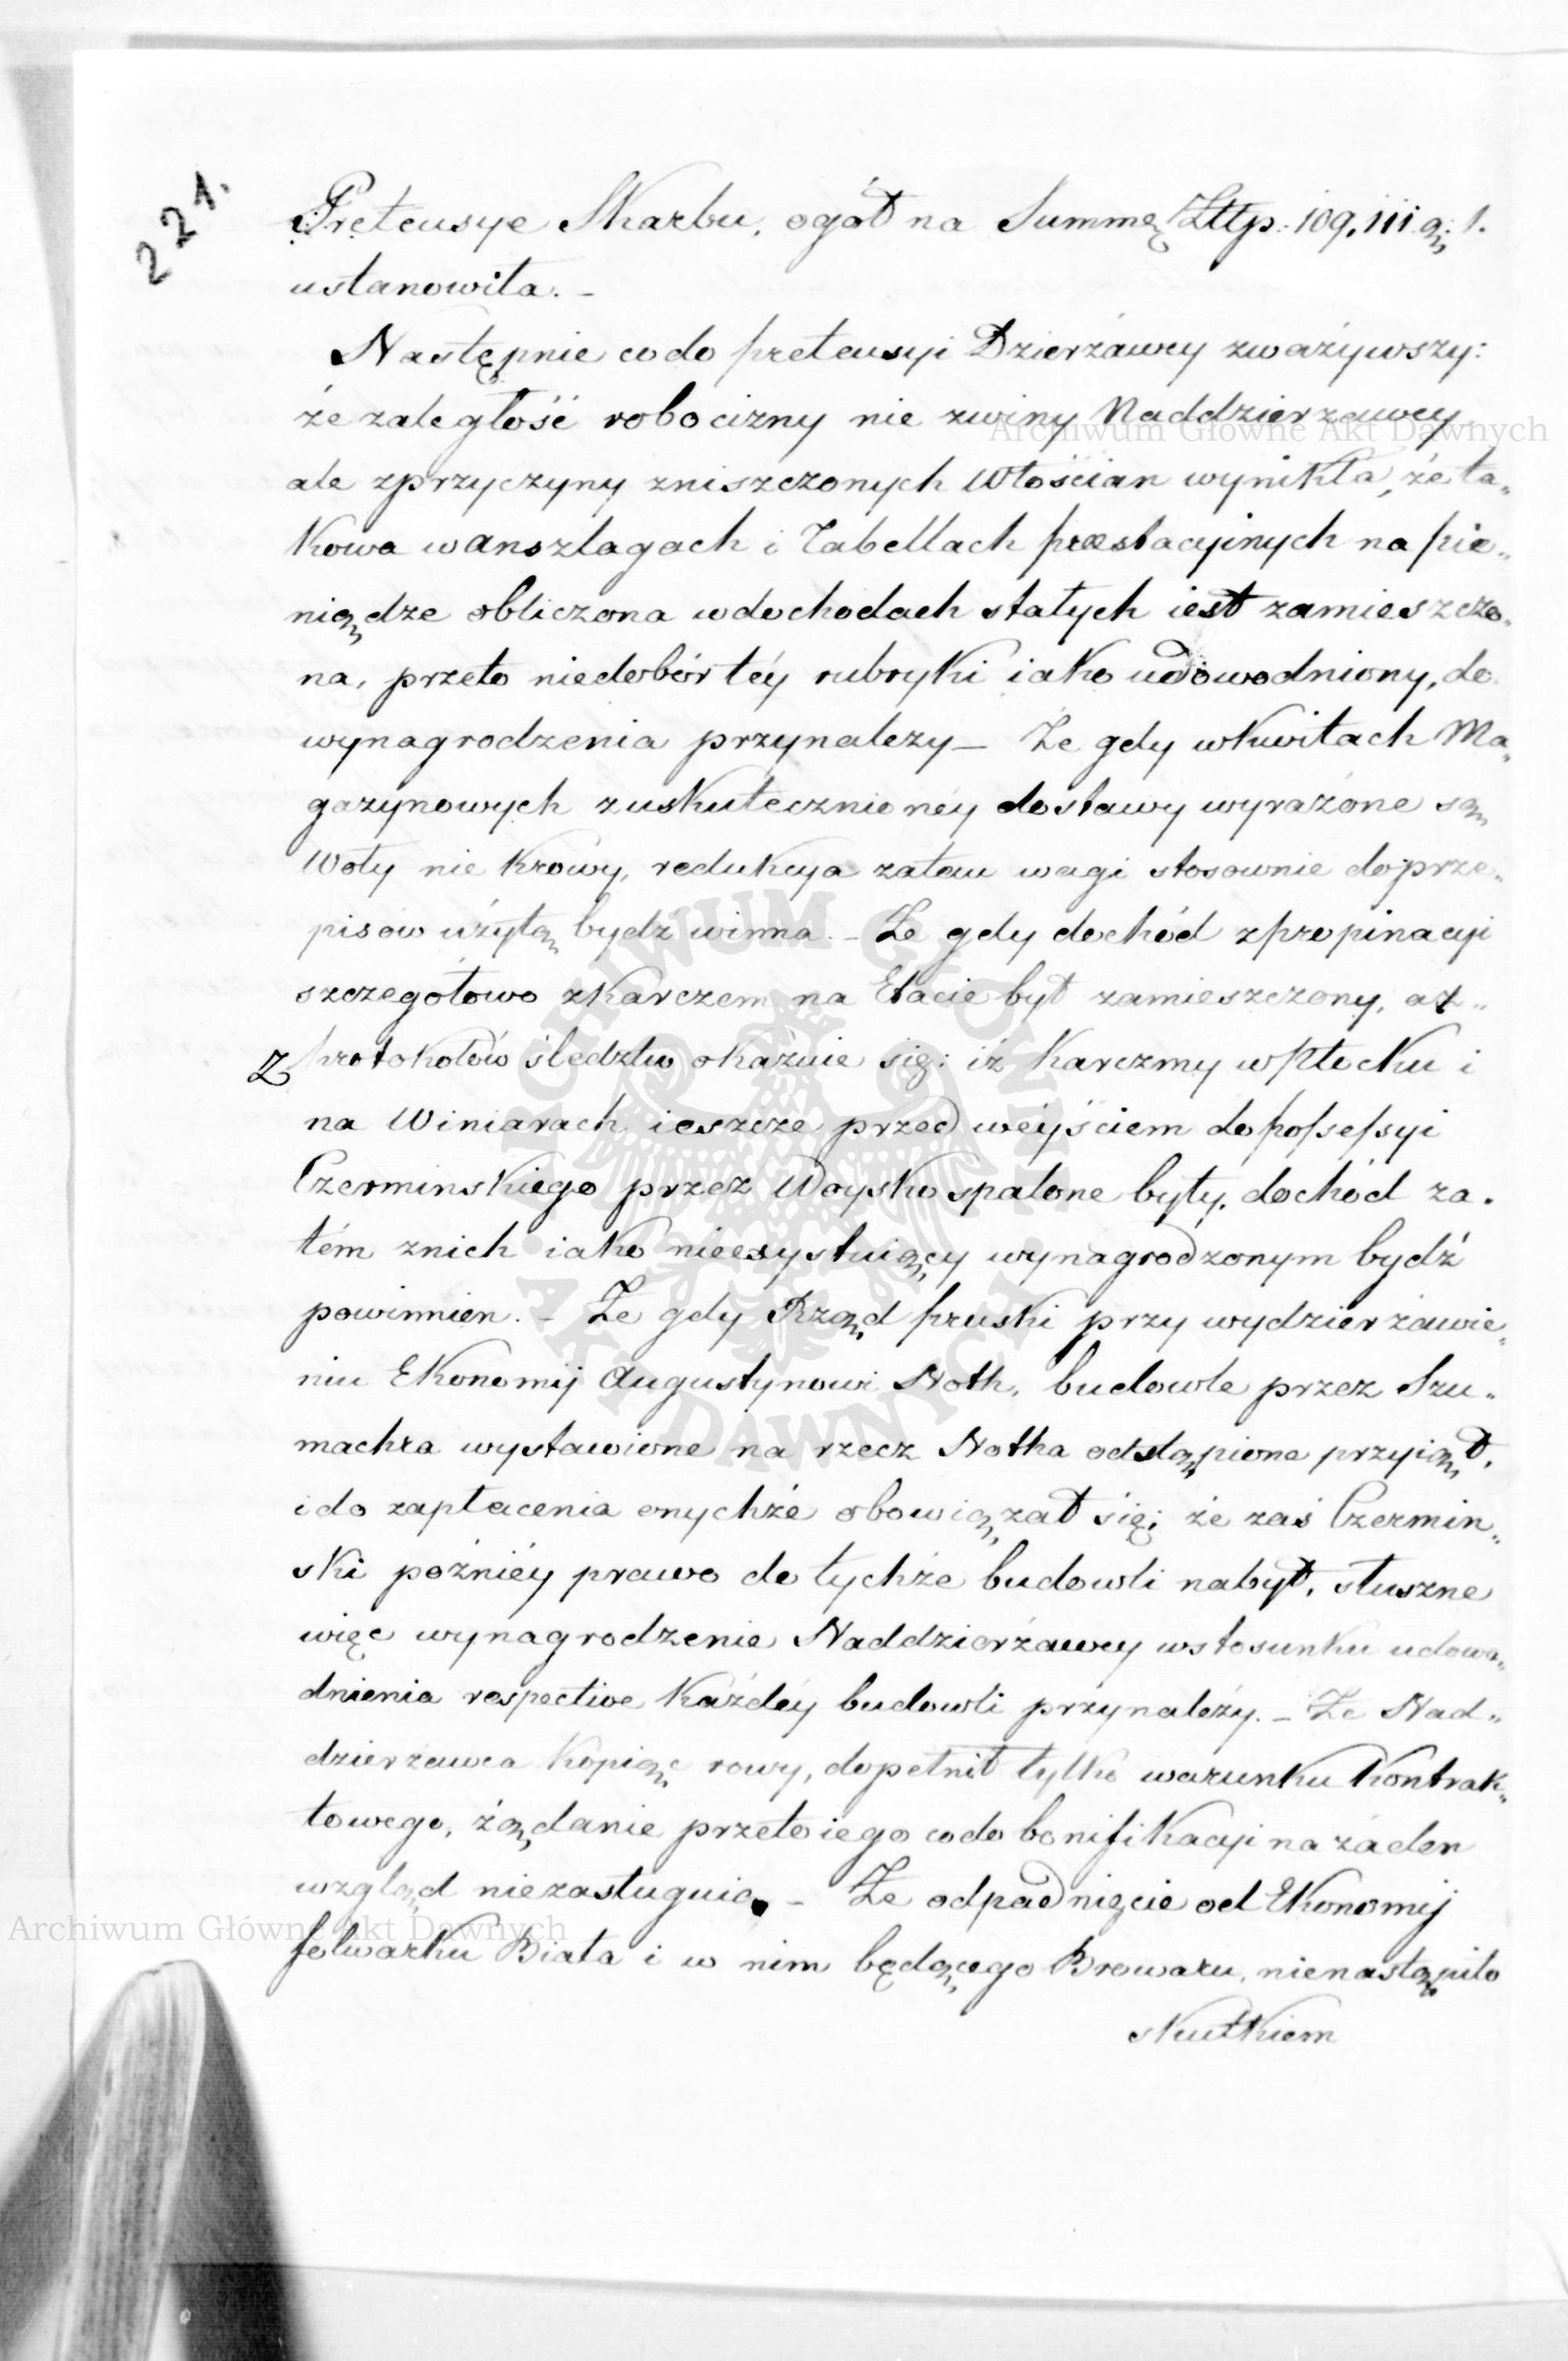 221.
Pretensye Skarbu, ogół na Summę Złtp: 109,111 g: 1.
ustanowiła. –
Następnie codo pretensyi Dzierżawcy zważywszy:
że zaległość robocizny nie zwiny Naddzierzawcy
ale zprzyczyny zniszczonych Włościan wynikła, że ta„
kowa wanszlagach i Tabellach præstacyinych na pie„
niądze obliczona wdochodach stałych iest zamieszczo„
na, przeto niedobór téy rubryki iako udowodniony, do
wynagrodzenia przynalezy – Że gdy wkwitach Ma„
gazynowych zuskutecznionéy dostawy wyrażone są
Woły nie krowy, redukcya zatem wagi stosownie doprze„
pisow użytą bydz winna. – Że gdy dochód zpropinacyi
szczegółowo zkarczem na Etacie był zamieszczony, az„
z protokołów śledztw okazuie się: iż karczmy wPłocku i
na Winiarach ieszcze przed weyściem do possessyi
Czerminskiego przez Woysko spalone były, dochód za„
tém znich iako nieexystuiący wynagrodzonym bydź
powinnien. – Że gdy Rząd pruski przy wydzierżawie„
niu Ekonomij Augustynowi Noth, budowle przez Szu„
machra wystawione na rzecz Notha odstąpione przyiął,
i do zapłacenia onychże obowiązał się; że zaś Czermin„
ski poźniéy prawo do tychże budowli nabył, słuszne
więc wynagrodzenie Naddzierżawcy wstosunku udowo„
dnienia respective każdéy budowli przynależy. – Że Nad„
dzierżawca kopiąc rowy, dopełnił tylko warunku kontrak„
towego, żądanie przeto iego codo bonifikacyi na żaden
wzgląd niezasługuie. – Że odpadnięcie od Ekonomij
folwarku Biała i w nim będącego Browaru, nienastąpiło
skutkiem
Archiwum Główne Akt Dawnych
Archiwum Główne Akt Dawnych
ARCHIWUM GŁÓWNE AKT DAWNYCH